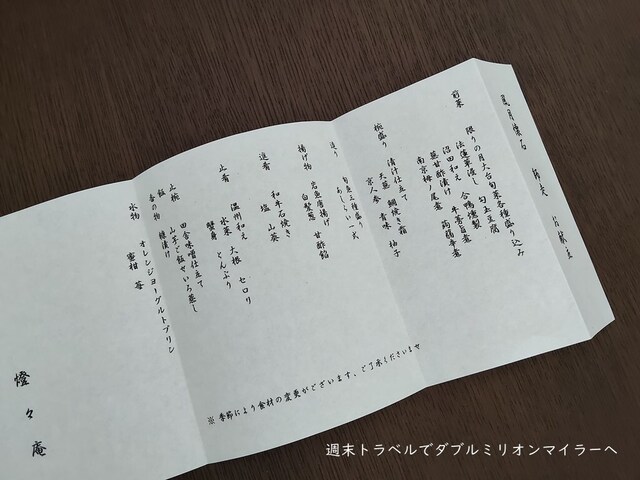 月懐石 師走 献立
前菜
限りの月大台旬菜各種盛り込み
法蓮草浸し 豆腐
沼田和え 合鴨燻製
蕪甘酢漬け 牛蒡旨煮
南京栂ノ尾煮 蒟蒻辛煮
椀盛り
清汁仕立て
天蕪 鯛焼き霜
京人参 青味 柚子
造り
旬魚三種盛り
あしらい一式
揚げ物
岩魚唐揚げ
白髪葱 甘酢餡
進肴
和牛石焼き
塩 山葵
止肴
温州和え 大根 セロリ
水菜 とんぶり
蟹身
止椀 田舎味噌仕立て
飯 山芋ご飯せいろ蒸し
香の物 糠漬け
水物 オレンジヨーグルトプリン
蜜柑 苺
※季節により食材の変更がございます、ご了承くださいませ
燈々庵
週末トラベルでダブルミリオンマイラーへ